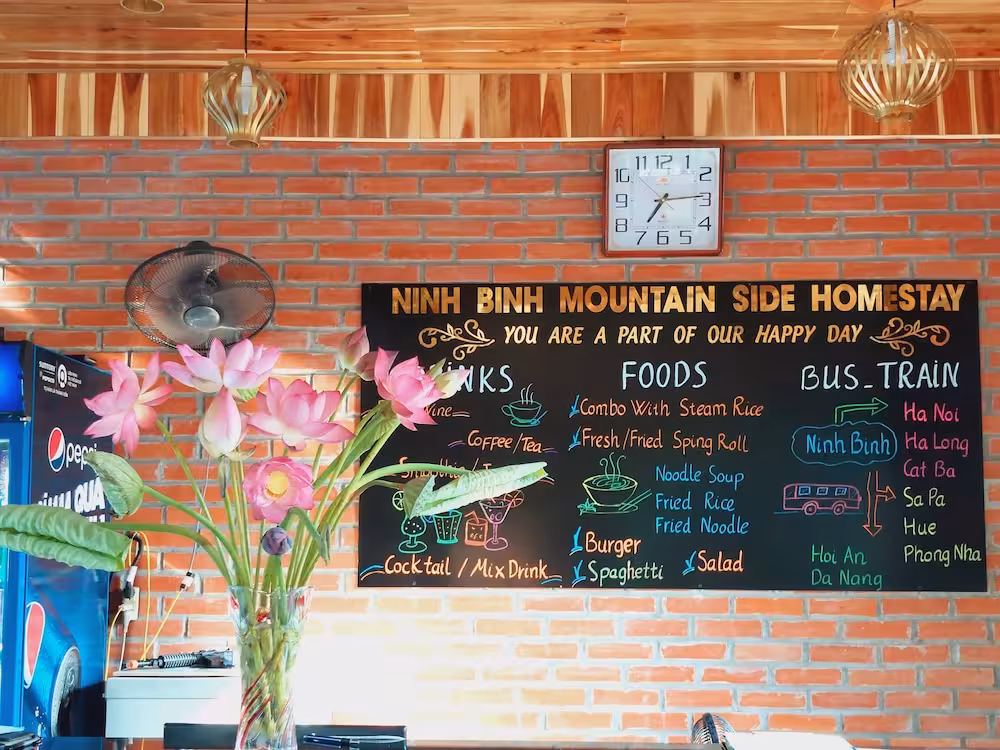 11 12 1
10 2
9 3
8 4
7 6 5
NINH BINH MOUNTAIN SIDE HOMESTAY
YOU ARE A PART OF OUR HAPPY DAY
FOODS
BUS_TRAIN
Combo With Steam Rice
Coffee/Tea
Fresh/Fried Sping Roll
Noodle Soup
Fried Rice
Fried Noodle
Burger
Spaghetti
Salad
Cocktail / Mix Drink
Ninh Binh
Ha Noi
Ha Long
Cat Ba
Sa Pa
Hue
Phong Nha
Hoi An
Da Nang
SUNTORY
PEPSICO
pepsi